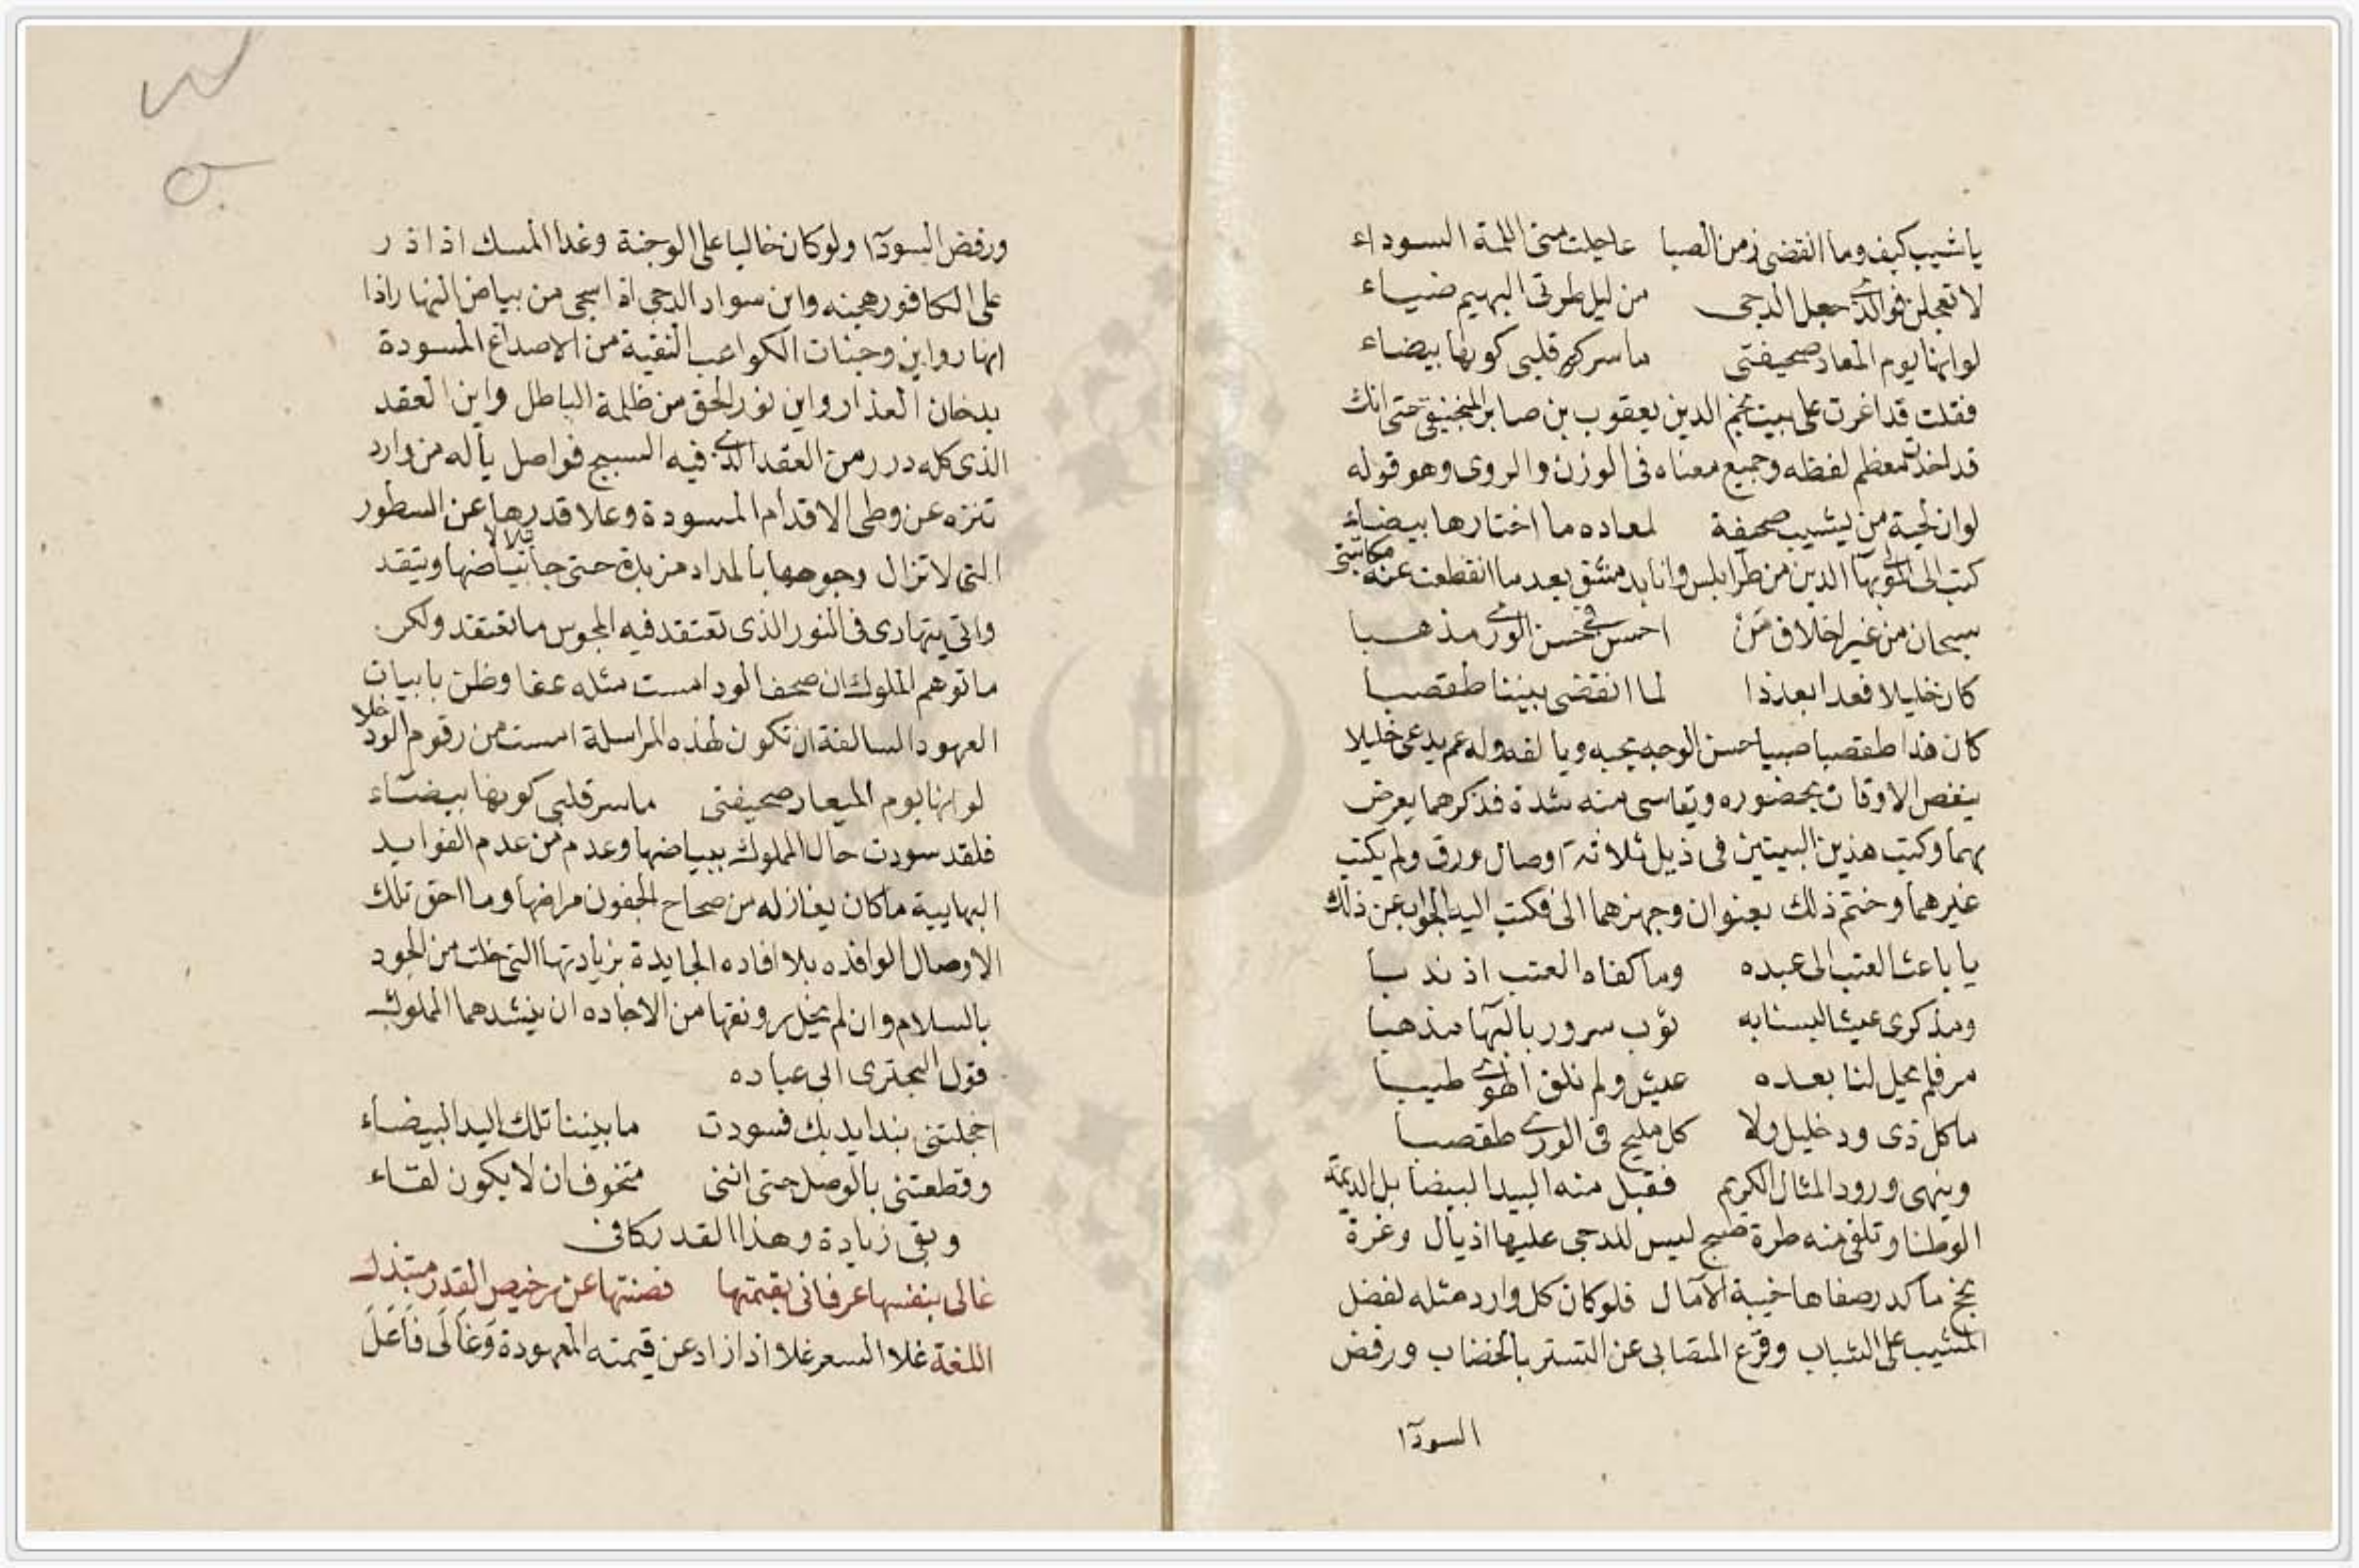 يا شيب كيف وما انقضى زمن الصبا عاجلت مني اللمة السوداء
لا تعجلن فوالذي جعل الدجى من ليل طرتي البهيم ضياء
لو انها يوم المعاد صحيفتي ما سر قلبي كونها بيضاء
فقلت قد اغرت على بيت نجم الدين يعقوب بن صابر المنجنيقي حتى انك
قد اخذت معظم لفظه وجميع معناه في الوزن والروى وهو قوله
لو ان لحية من يشيب صحيفة لمعاده ما اختارها بيضاء
كتب الى المولى بهآ الدين من طرابلس وانا بدمشق بعد ما انقطعت عنه مكاتبتي
سبحان من غير اخلاق من احسن في حسن الورى مذهبا
كان خليلا فغدا بعد ذا لما انقضى بيننا طقصبا
كان هذا طقصبا صبيا حسن الوجه يحبه ويالفه وله عم يدعى خليلا
ينغص الاوقات بحضوره ويقاسى منه شدة فذكرهما يعرض
بهما وكتب هذين البيتين في ذيل ثلاثة اوصال ورق ولم يكتب
غيرهما وختم ذلك بعنوان وجهزهما الى فكتب اليه الجواب عن ذلك
يا باعث العتب الى عبده وما كفاه العتب اذ ندبا
ومذكرى عيشا لبسنا به ثوب سرور بالبهآ مذهبا
مر فلم يحل لنا بعده عيش ولم نلق الهوى طيبا
ما كل ذى ود خليل ولا كل مليح في الورى طقصبا
وينهى ورود المثال الكريم فقبل منه اليد البيضا بل الديمة
الوطفا وتلقى منه طرة صبح ليس للدجى عليها اذيال وغرة
نجح ما كدر صفاها خيبة الآمال فلو كان كل وارد مثله لفضل
المشيب على الشباب ونزع المتصابى عن التستر بالخضاب ورفض
السودآ
ورفض السودآ ولو كان خاليا على الوجنة وغدا المسك اذا ذر
على الكافور هجنه واين سواد الدجى اذا سجى من بياض النهار اذا
انهار واين وجنات الكواعب النقية من الاصداغ المسودة
بدخان العذار واين نور الحق من ظلمة الباطل واين العقد
الذى كله درر من العقد الذي فيه السبج فواصل يا له من وارد
تنزه عن وطى الاقدام المسودة وعلا قدرها عن السطور
التى لا تزال وجوهها بالمداد مزبدة حتى جا يتلالا بياضها ويتقد
واتى يتهادى في النور الذى تعتقد فيه المجوس ما تعتقد ولكن
ما توهم المملوك ان صحف الود امست مثله عفا وظن بابيات
العهود السالفة ان تكون لهذه المراسلة امست من رقوم الود خلا
لو انها يوم الميعاد صحيفتى ما سر قلبى كونها بيضآء
فلقد سودت حال المملوك ببياضها وعدم من عدم الفوايد
البهايية ما كان يغازله من صحاح الجفون مراضها وما احق تلك
الاوصال الوافده بلا افاده الجايدة بزيادتها التى خلت من الجود
بالسلام وان لم يخل رونقها من الاجاده ان ينشدهما المملوك
قول البحترى ابى عباده
اخجلتنى بندا يديك فسودت ما بيننا تلك اليد البيضاء
وقطعتنى بالوصل حتى اننى متخوف ان لا يكون لقاء
وبقى زيادة وهذا القدر كافى
غالى بنفسها عرفانى بقيمتها فصنتها عن رخيص القدر مبتذل
اللغة غلا السعر غلاوا اذا زاد عن قيمته المعهودة وغالى فاعل